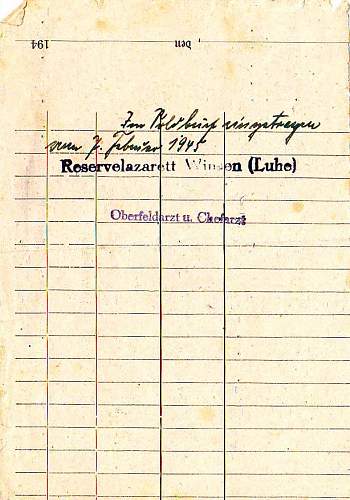 den 194
Im Soldbuch eingetragen
vom 7. Februar 1945
Reservelazarett Winsen (Luhe)
Oberfeldarzt u. Chefarzt